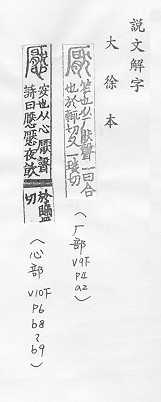 說文解字
大徐本
笮也从厂猒聲一曰合
也於輒切又一琰切
(厂部 V9下 P4 a2)
安也从心厭聲
詩曰懕懕夜飲
於鹽切
(心部 V10下 P6 b8~b9)